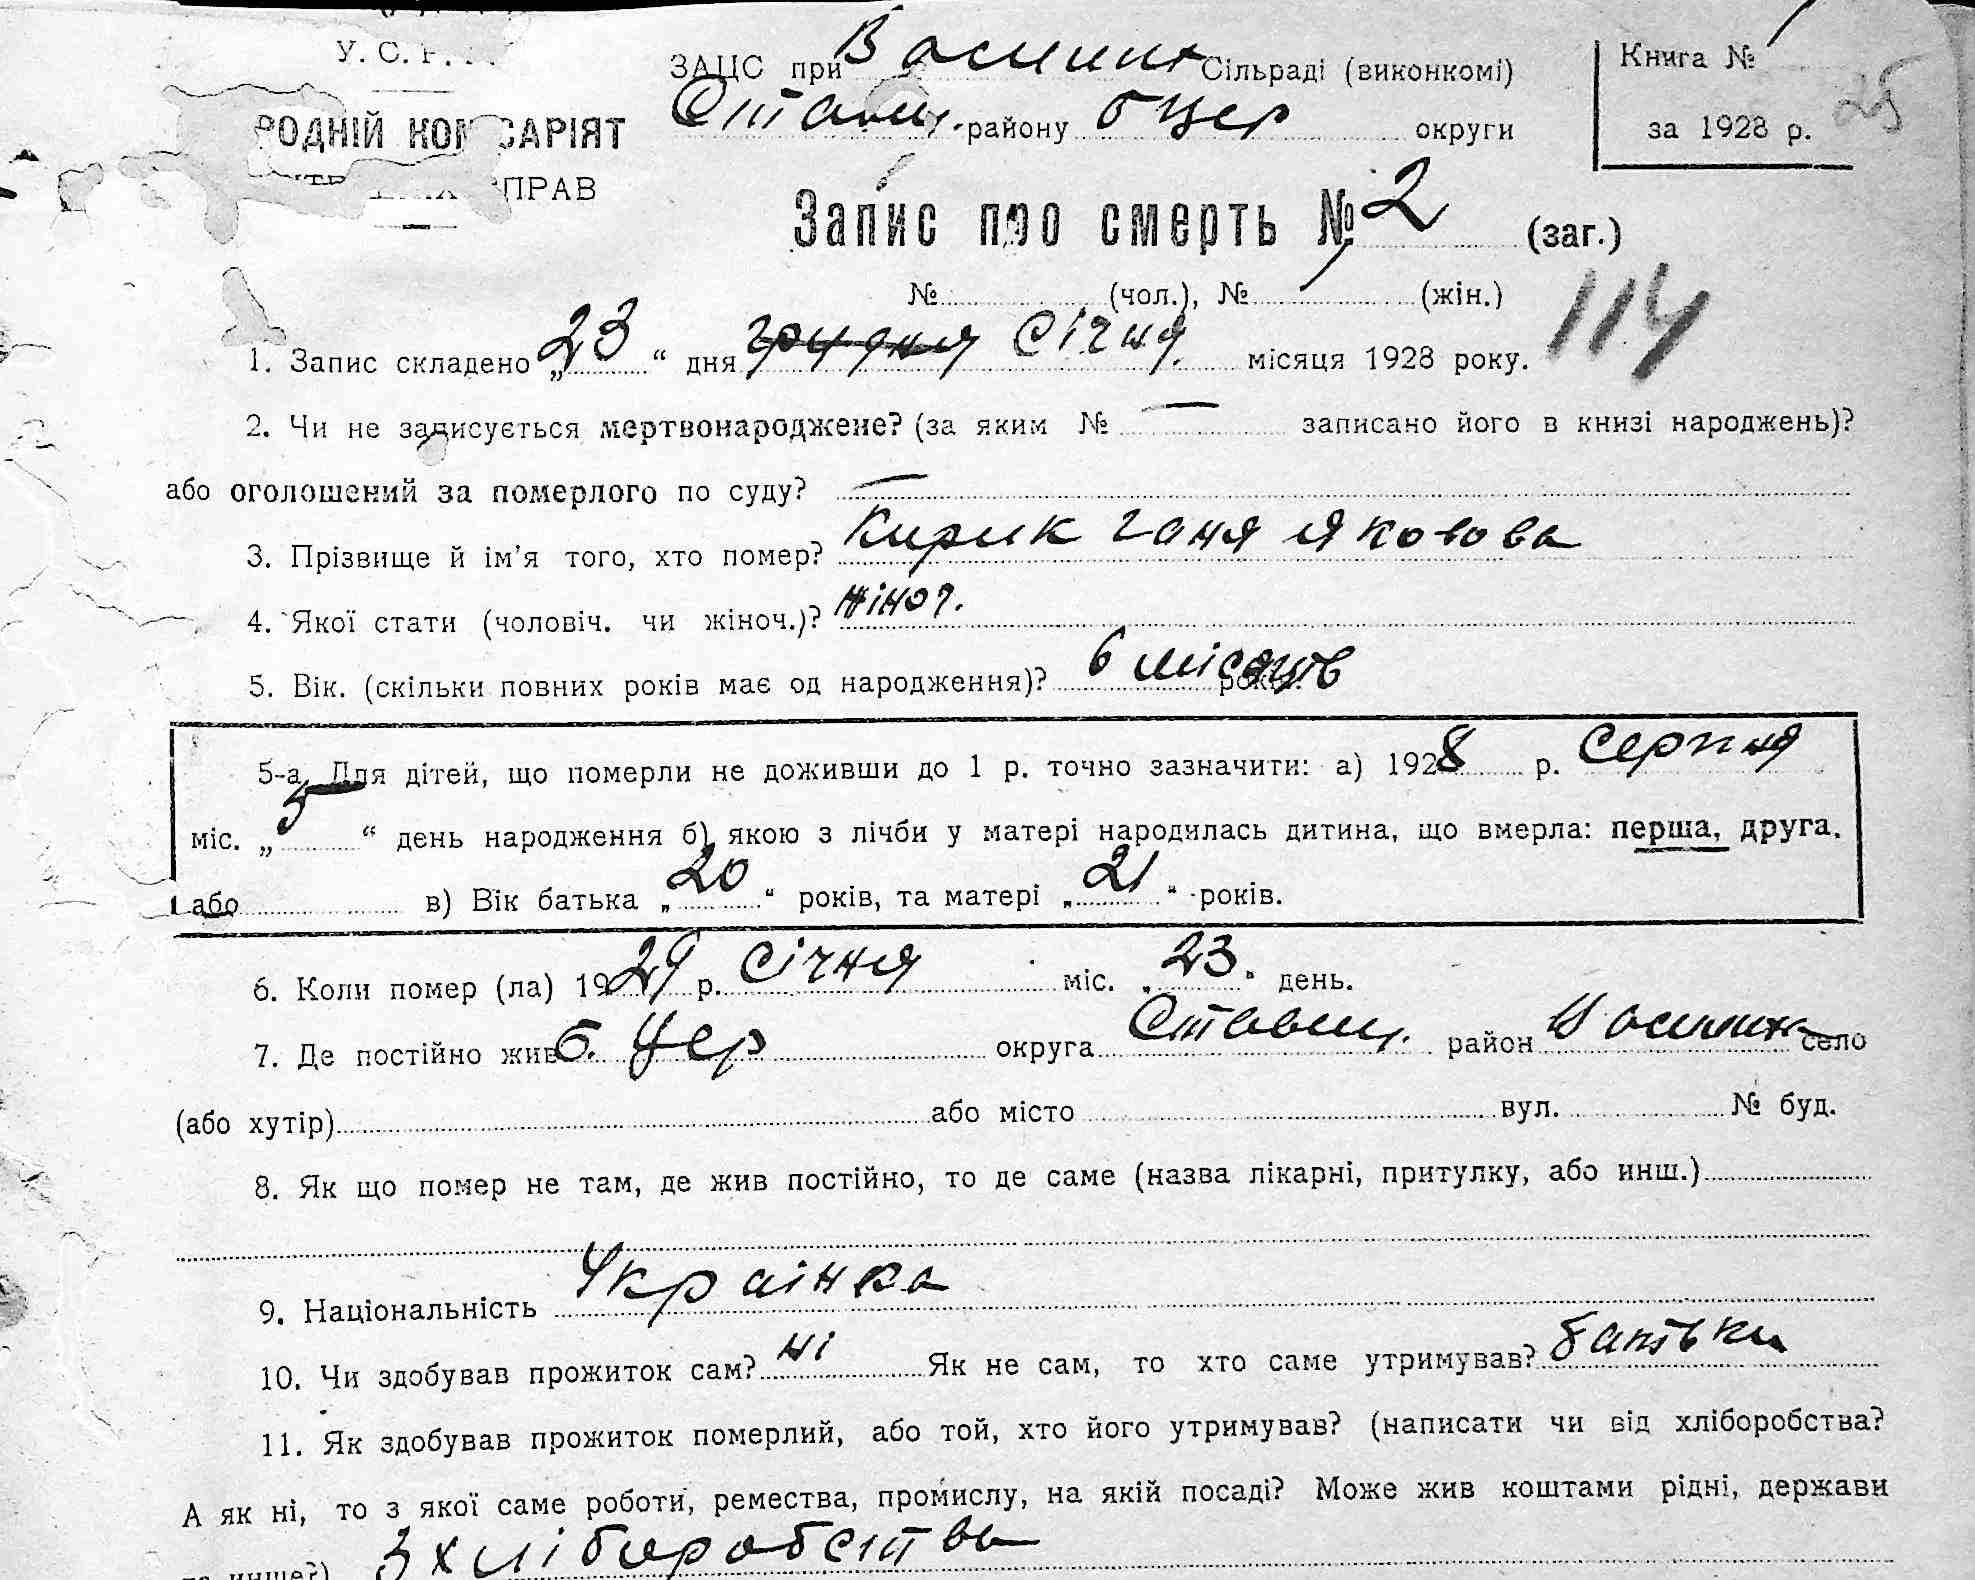 У. С. Р. Р.
ЗАЦС при Василих Сільраді (виконкомі)
Книга № 1
25
РОДНІЙ КОМІСАРІЯТ
Ставищ. району б Цер округи
за 1928 р.
СПРАВ
Запис про смерть № 2 (заг.)
№ (чол.), № 1 (жін.)
114
1. Запис складено „23“ дня грудня Січня місяця 1928 року.
2. Чи не записується мертвонароджене? (за яким № — записано його в книзі народжень)?
або оголошений за померлого по суду? —
3. Прізвище й ім’я того, хто помер? Кирик Ганя Яковова
4. Якої стати (чоловіч. чи жіноч.)? жіноч.
5. Вік. (скільки повних років має од народження)? 6 місяців
5-а Для дітей, що померли не доживши до 1 р. точно зазначити: а) 1928 р. Серпня
міс. „5“ день народження б) якою з лічби у матері народилась дитина, що вмерла: перша, друга.
або в) Вік батька „20“ років, та матері „21“ років.
6. Коли помер (ла) 1929 р. Січня міс. „23“ день.
7. Де постійно жив б. Цер округа Ставищ. район село
(або хутір) або місто вул. № буд.
8. Як що помер не там, де жив постійно, то де саме (назва лікарні, притулку, або инш.)
9. Національність Українка
10. Чи здобував прожиток сам? ні Як не сам, то хто саме утримував? батьки
11. Як здобував прожиток померлий, або той, хто його утримував? (написати чи від хліборобства?
А як ні, то з якої саме роботи, ремества, промислу, на якій посаді? Може жив коштами рідні, держави
та инше?) З хліборобства